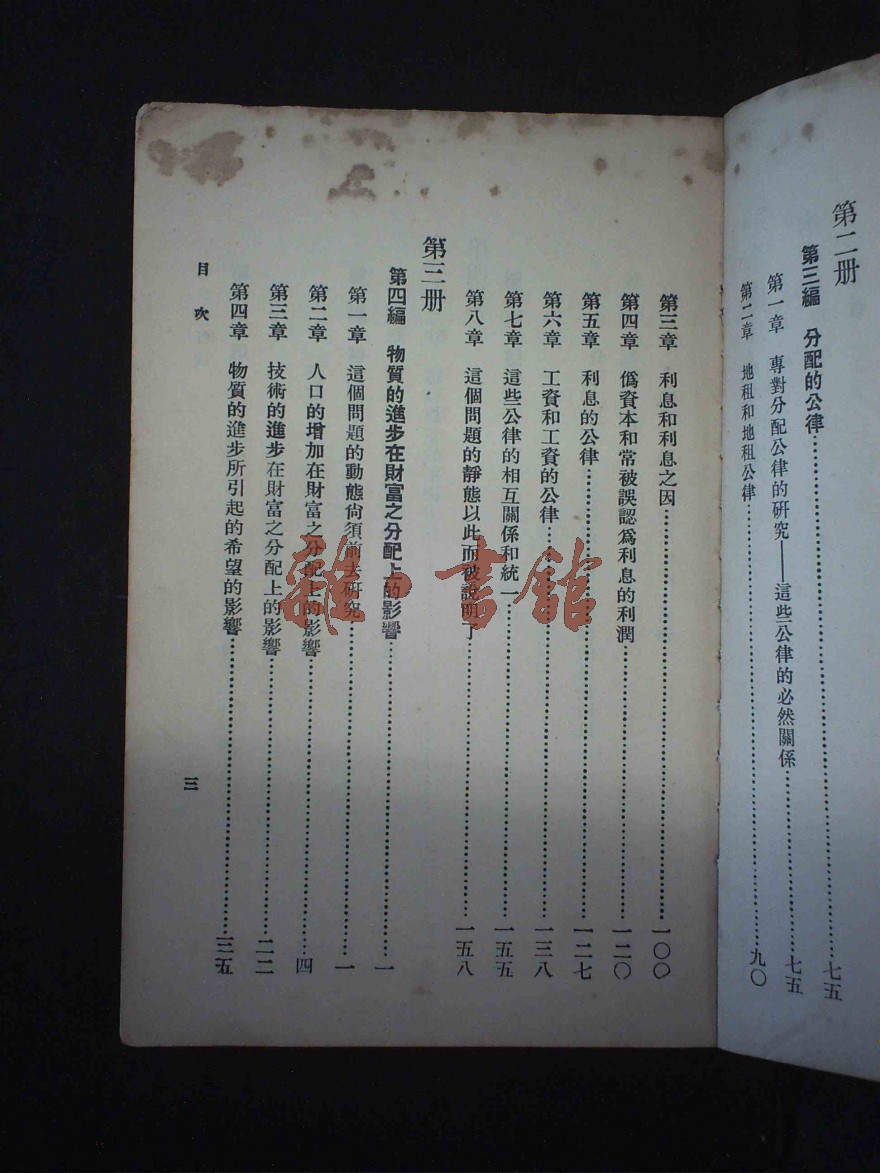 第二册
第三編　分配的公律……七五
第一章　專對分配公律的研究——這些公律的必然關係……七五
第二章　地租和地租公律……九〇
第三章　利息和利息之因……一〇〇
第四章　僞資本和常被誤認爲利息的利潤……一二〇
第五章　利息的公律……一二七
第六章　工資和工資的公律……一三八
第七章　這些公律的相互關係和統一……一五五
第八章　這個問題的靜態以此而被說明了……一五八
第三册
第四編　物質的進步在財富之分配上的影響……一
第一章　這個問題的動態尙須前去研究……一
第二章　人口的增加在財富之分配上的影響……四
第三章　技術的進步在財富之分配上的影響……二二
第四章　物質的進步所引起的希望的影響……三五
目次
三
雜·書館